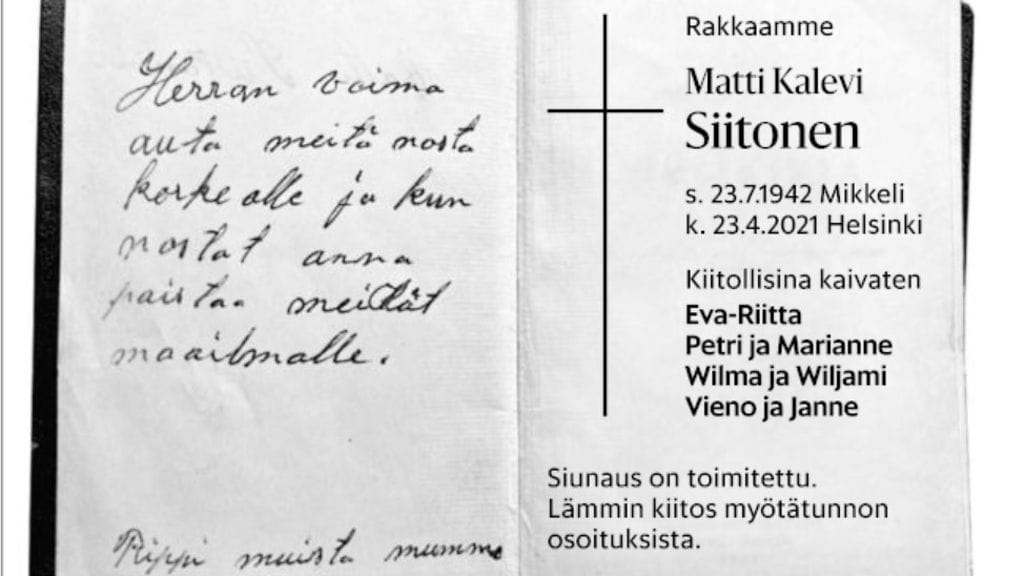 Herran voima
auta meitä nosta
korkealle ja kun
nostat anna
paistaa meidät
maailmalle.
Rippi muisto mummo
Rakkaamme
Matti Kalevi
Siitonen
s. 23.7.1942 Mikkeli
k. 23.4.2021 Helsinki
Kiitollisina kaivaten
Eva-Riitta
Petri ja Marianne
Wilma ja Wiljami
Vieno ja Janne
Siunaus on toimitettu.
Lämmin kiitos myötätunnon
osoituksista.